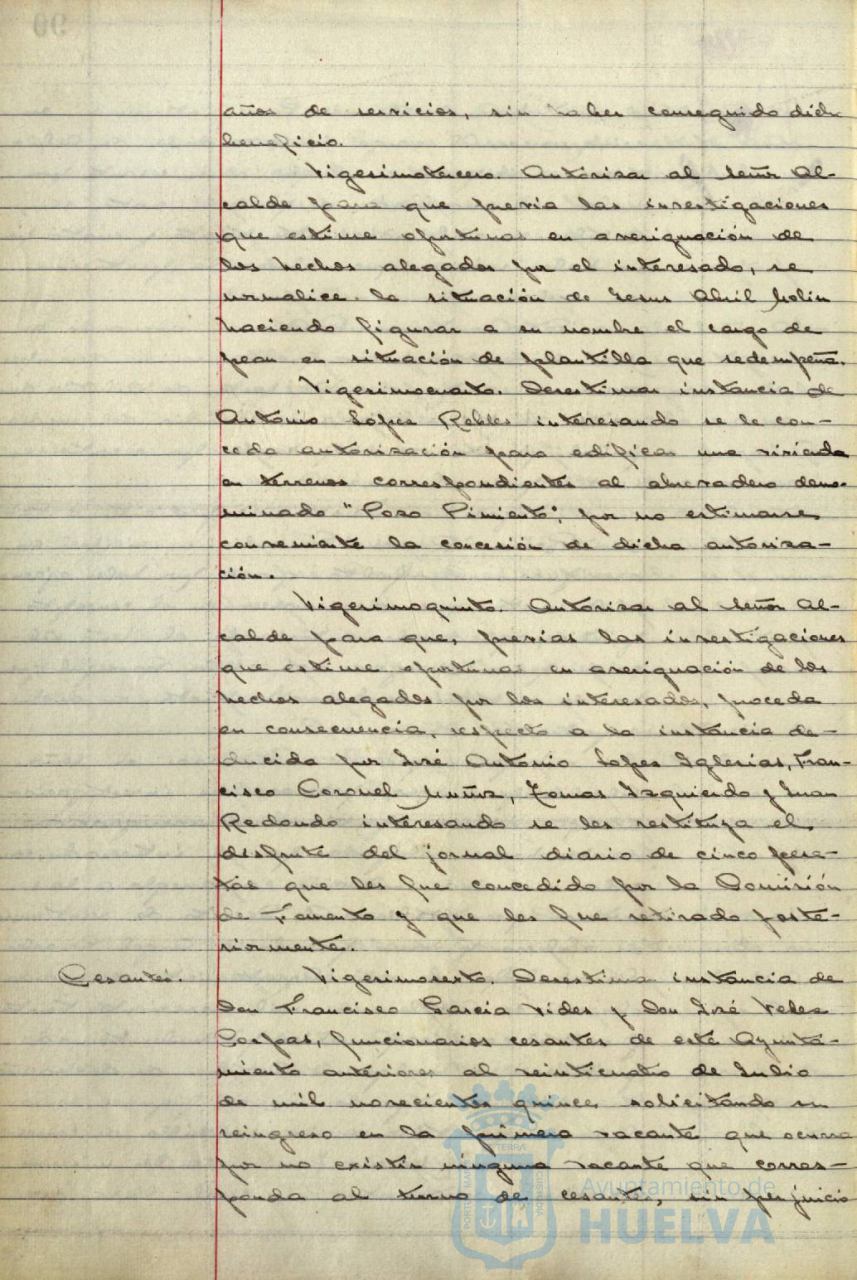 años de servicios, sin haber conseguido dicho
beneficio.
Vigesimotercero. Autorizar al Señor Al-
calde para que previa las investigaciones
que estime oportunas en averiguación de
los hechos alegados por el interesado, se
normalice la situación de Jesus Abril
haciendo figurar a su nombre el cargo de
peon en situación de plantilla que sedempeña.
Vigesimocuarto. Desestimar instancia de
Antonio Lopez Robles interesando se le con-
ceda autorización para edificar una vivienda
en terrenos correspondientes al abrevadero deno-
minado "Pozo Pimiento", por no estimarse
conveniente la concesión de dicha autoriza-
ción.
Vigesimoquinto. Autorizar al Señor Al-
calde para que, previas las investigaciones
que estime oportunas en averiguación de los
hechos alegados por los interesados, proceda
en consecuencia, respecto a la instancia de-
ducida por José Antonio Lopez Iglesias, Fran-
cisco Coronel Muñiz, Tomas Izquierdo y Juan
Redondo interesando se les restituya el
disfrute del jornal diario de cinco pese-
tas que les fue concedido por la Comisión
de Fomento y que les fue retirado poste-
riormente.
Cesantes.
Vigesimosexto. Desestimar instancia de
Don Francisco Garcia Vides y Don José Velez
funcionarios cesantes de este Ayunta-
miento anteriores al veinticuatro de Julio
de mil novecientos quince, solicitando su
reingreso en la primera vacante que ocurra
por no existir ninguna vacante que corres-
ponda al turno de cesantes, sin perjuicio
Ayuntamiento de
HUELVA